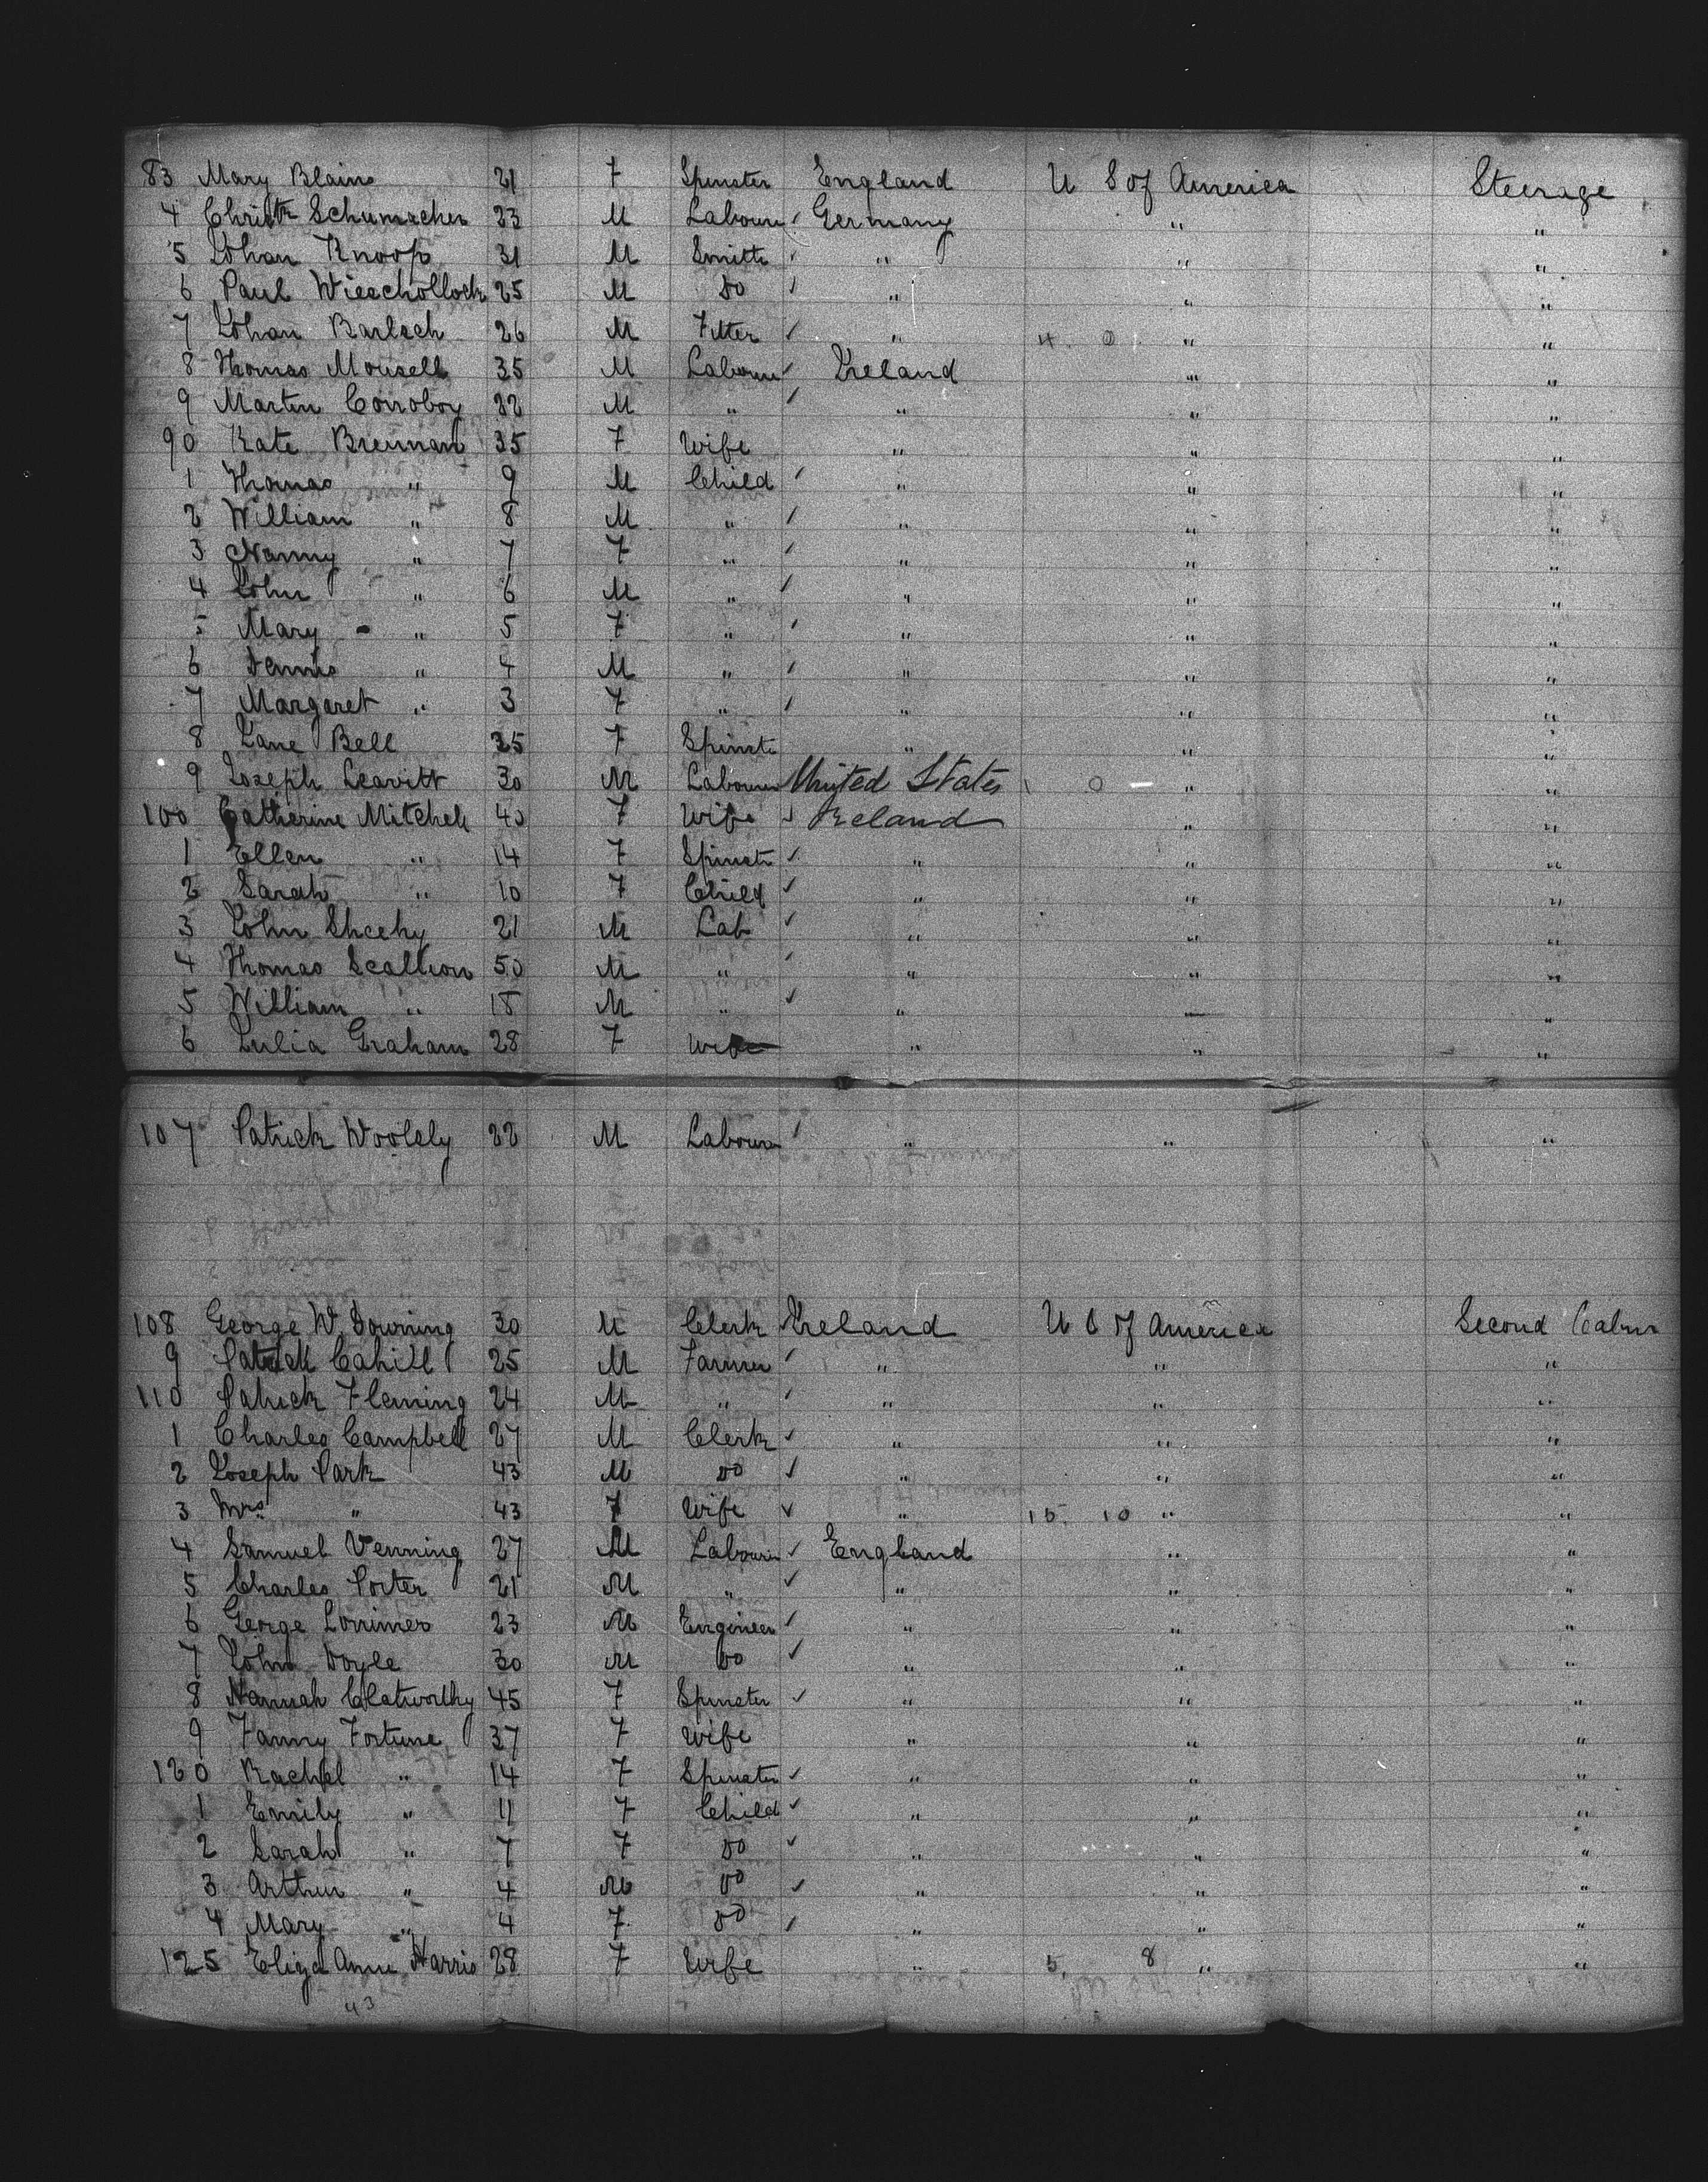 83 Mary Blains 21 F Spinster England U S of America Steerage
4 Christn Schumacher 23 M Labourer Germany " "
5 Johan Knoop 31 M Smith " " "
6 Paul Wieschollock 25 M Do " " "
7 Johan Barlsch 26 M Fitter " 4. 0 " "
8 Thomas Mousell 35 M Labourer Ireland " "
9 Martin Conoboy 22 M " " " "
90 Kate Brennan 35 F Wife " " "
1 Thomas " 9 M Child " " "
2 William " 8 M " " " "
3 Nanny " 7 F " " " "
4 John " 6 M " " " "
5 Mary " 5 F " " " "
6 Dennis " 4 M " " " "
7 Margaret " 3 F " " " "
8 Jane Bell 35 F Spinster " " "
9 Joseph Leavitt 30 M Labourer United States 1 0 - " "
100 Catherine Mitchell 40 F Wife Ireland " "
1 Ellen " 14 F Spinster " " "
2 Sarah " 10 F Child " " "
3 John Sheehy 21 M Lab " " "
4 Thomas Scallion 50 M " " " "
5 William " 18 M " " "
6 Julia Graham 28 F Wife " " "
107 Patrick Woolely 22 M Labourer " " "
108 George W. Downing 30 M Clerk Ireland U S of America Second Cabin
9 Patrick Cahill 25 M Farmer " " "
110 Patrick Fleming 24 M " " " "
1 Charles Campbell 27 M Clerk " " "
2 Joseph Park 43 M Do " " "
3 Mrs " 43 F Wife " 15. 10 " "
4 Samuel Venning 27 M Labourer England " "
5 Charles Porter 21 M " " " "
6 George Lorrimer 23 M Engineer " " "
7 John Doyle 30 M Do " " "
8 Hannah Clatworthy 45 F Spinster " " "
9 Fanny Fortune 37 F Wife " " "
120 Rachel " 14 F Spinster " " "
1 Emily " 11 F Child " " "
2 Sarah " 7 F Do " "
3 Arthur " 4 M Do " " "
4 Mary " 4 F Do " " "
125 Eliza Anne Harris 28 F Wife " 5. 8 " "
43